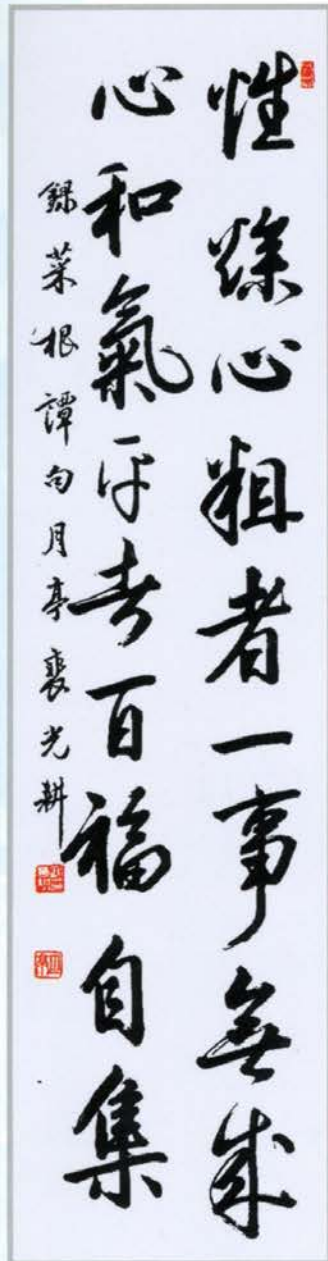 性燥心粗者一事無成
心和氣平者百福自集
錄菜根譚句月亭裵光耕